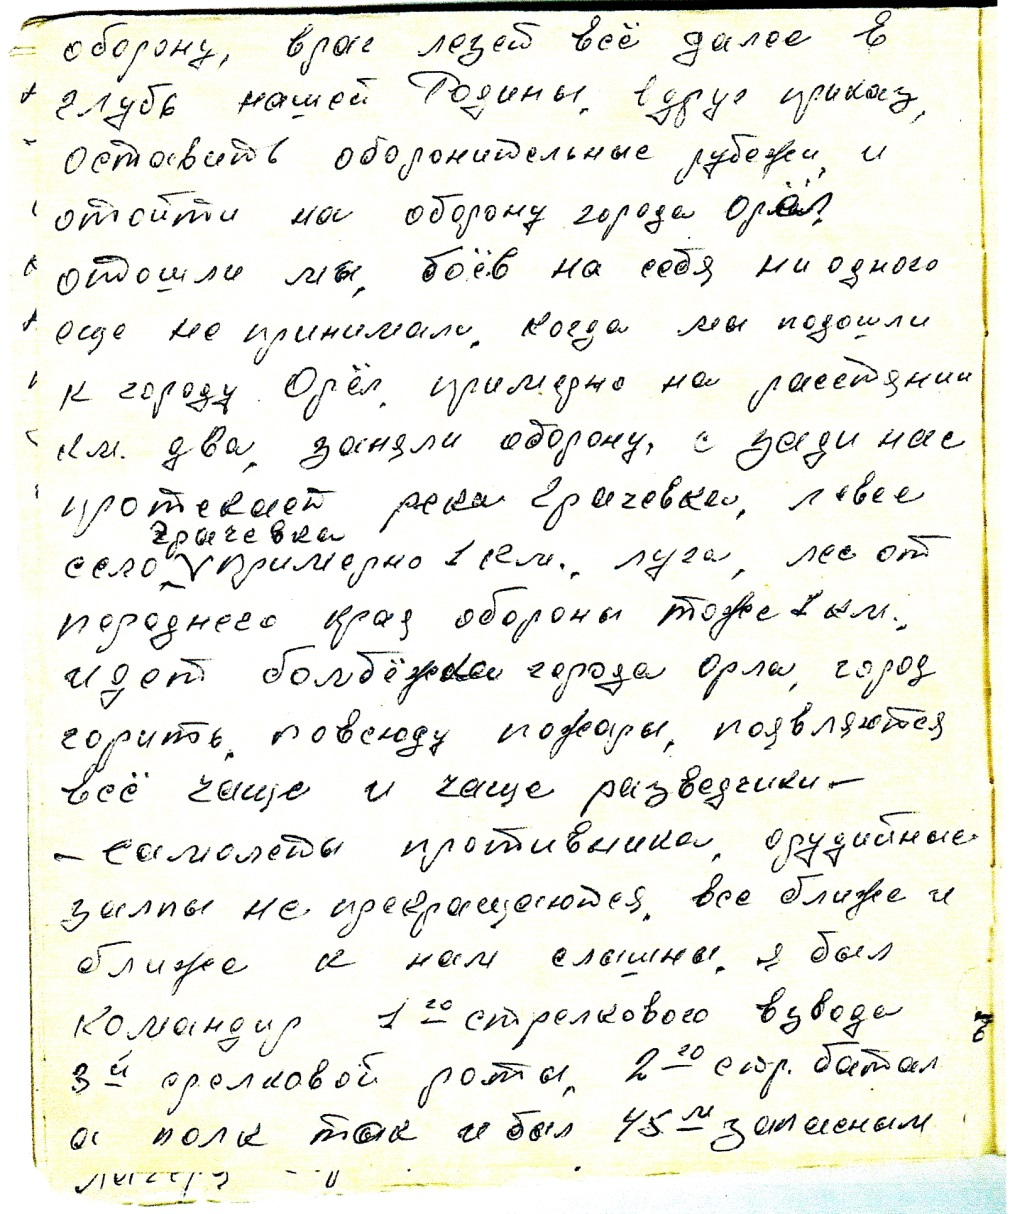 оборону, враг лезет всё далее в
глубь нашей Родины, вдруг приказ,
оставить оборонительные рубежи, и
отойти на оборону города Орёл,
отошли мы, боёв на себя ни одного
еще не принимали, когда мы подошли
к городу Орёл, примерно на расстянии
км. два, заняли оборону, с зади нас
протекает река Грачевка, левее
грачевка
село, примерно 1 км., луга, лес от
переднего края обороны тоже 1 км.,
идет бомбёжка города Орла, город
горить, повсюду пожары, появляются
всё чаще и чаще разведчики –
– самолеты противника, орудийные
залпы не прекращаются, все ближе и
ближе к нам слышны, я был
командир 1го стрелкового взвода
3й срелковой роты, 2го стр. батал
а полк так и был 45м запасным